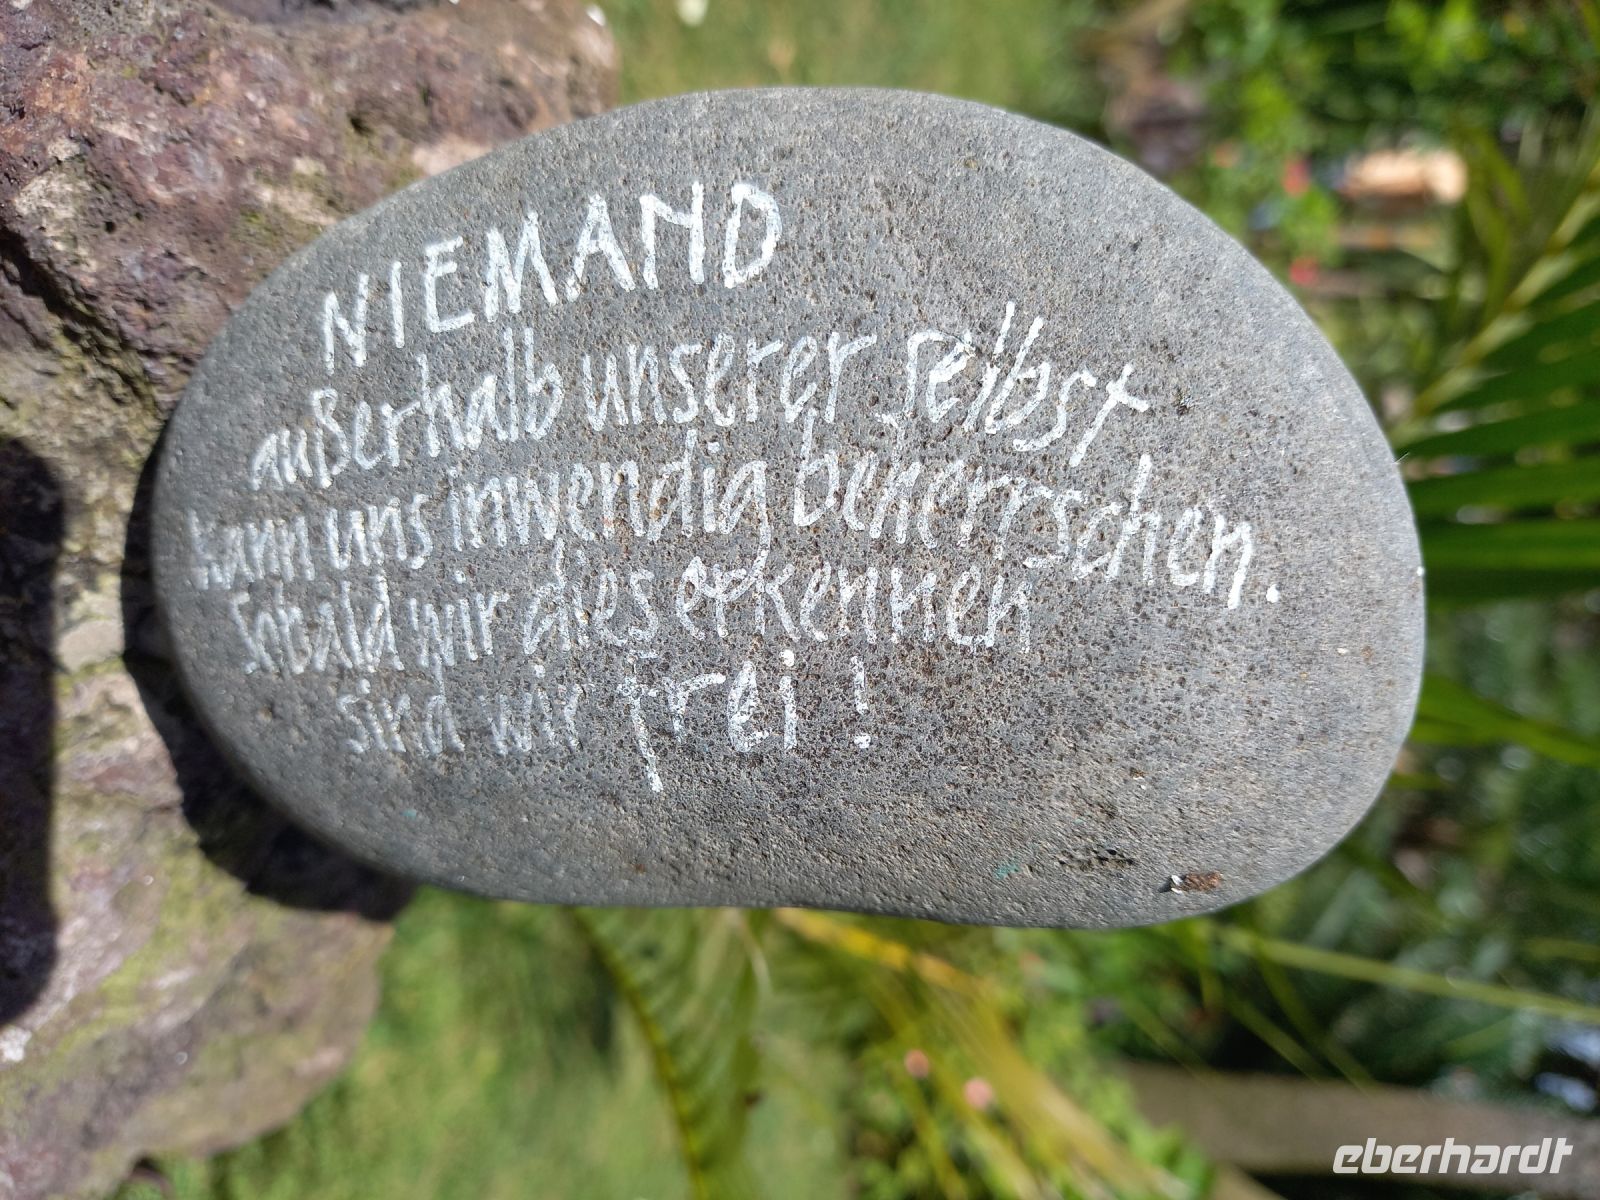 NIEMAND
außerhalb unserer selbst
kann uns inwendig beherrschen.
Sobald wir dies erkennen
sind wir frei!
eberhardt